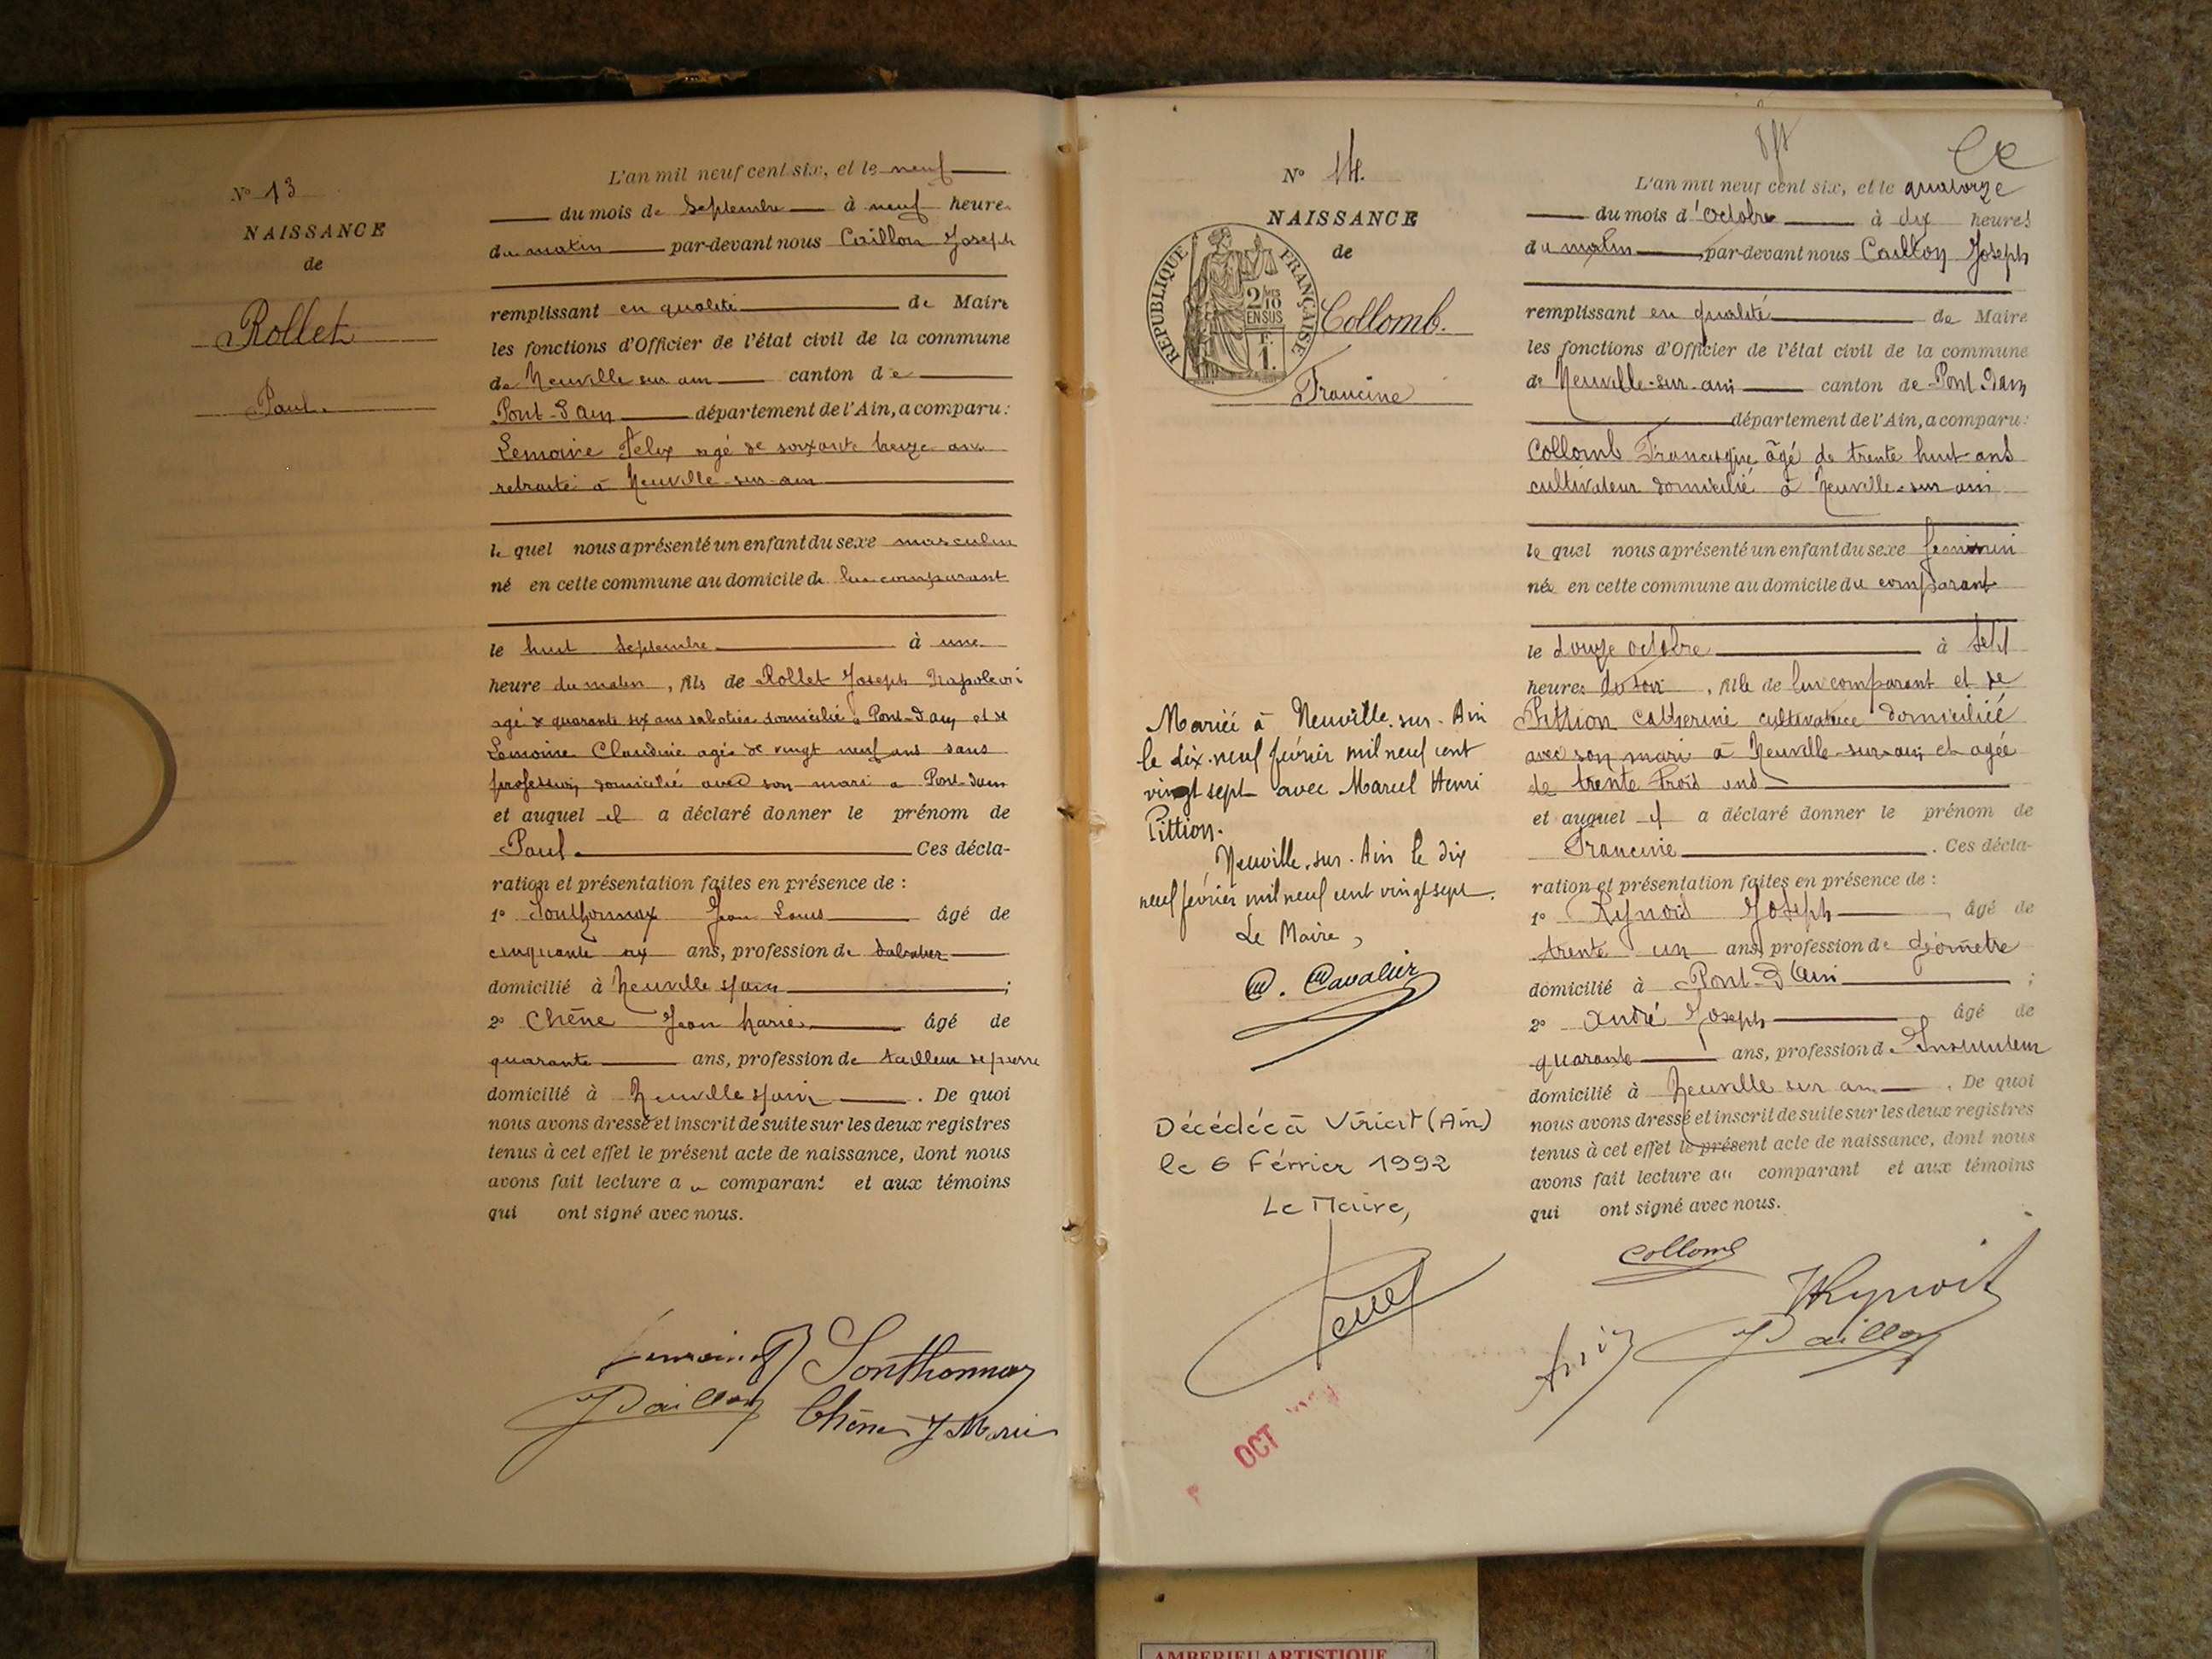 N° 13
NAISSANCE
de
Rollet
Paul.
L'an mil neuf cent six, et le neuf
du mois de Septembre à neuf heures
du matin par-devant nous Caillon Joseph
remplissant en qualité de Maire
les fonctions d'Officier de l'état civil de la commune
de Neuville sur ain canton de
Pont-d'ain département de l'Ain, a comparu:
Lemoine Félix agé de soixante treize ans
retraité à Neuville-sur-ain
le quel nous a présenté un enfant du sexe masculin
né en cette commune au domicile de lui comparant
le huit Septembre à une
heure du matin, fils de Rollet Joseph Napoléon
agé de quarante six ans sabotier domicilié à Pont-d'ain et de
Lemoine Claudine agée de vingt neuf ans sans
profession domicilié avec son mari a Pont-dain
et auquel il a déclaré donner le prénom de
Paul. Ces décla-
ration et présentation faites en présence de :
1° Sonthonnax Jean Louis âgé de
cinquante six ans, profession de sabotier
domicilié à Neuville s/ain ;
2° Chêne Jean Marie âgé de
quarante ans, profession de tailleur de pierre
domicilié à Neuville s/ain. De quoi
nous avons dressé et inscrit de suite sur les deux registres
tenus à cet effet le présent acte de naissance, dont nous
avons fait lecture au comparant et aux témoins
qui ont signé avec nous.
Sonthonnax
JCaillon
Chêne J Marie
N° 14.
NAISSANCE
de
REPUBLIQUE FRANÇAISE
2/10
EN SUS
F.
1.
Collomb.
Francine
L'an mil neuf cent six, et le quatorze
du mois d'Octobre à dix heures
du matin par-devant nous Caillon Joseph
remplissant en qualité de Maire
les fonctions d'Officier de l'état civil de la commune
de Neuville-sur-ain canton de Pont d'ain
département de l'Ain, a comparu:
Collomb Francisque âgé de trente huit ans
cultivateur domicilié à Neuville-sur ain
le quel nous a présenté un enfant du sexe feminin
née en cette commune au domicile du comparant
le douze octobre à sept
heures du soir, fille de lui comparant et de
Pittion Catherine cultivatrice domiciliée
avec son mari à Neuville-sur-ain et agée
de trente trois ans
et auquel il a déclaré donner le prénom de
Francine. Ces décla-
ration et présentation faites en présence de :
1° Rynois Joseph, âgé de
trente un ans, profession de géomètre
domicilié à Pont-d'ain ;
2° André Joseph âgé de
quarante ans, profession d'Instituteur
domicilié à Neuville sur ain. De quoi
nous avons dressé et inscrit de suite sur les deux registres
tenus à cet effet le présent acte de naissance, dont nous
avons fait lecture au comparant et aux témoins
qui ont signé avec nous.
Collomb
JCaillon
Mariée à Neuville-sur-Ain
le dix-neuf février mil neuf cent
vingt sept avec Marcel Henri
Pittion.
Neuville-sur-Ain le dix
neuf février mil neuf cent vingt sept.
Le Maire,
C. Cavalier
Décédée à Viriat (Ain)
le 6 Février 1992
Le Maire,
OCT
AMBERIEU ARTISTIQUE